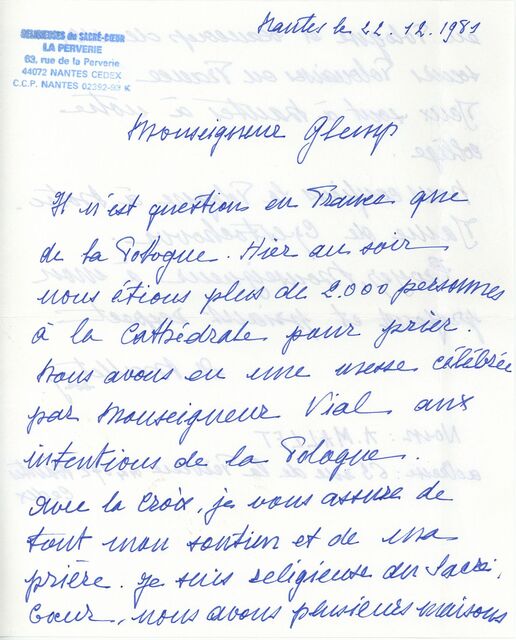 RELIGIEUSES du SACRÉ-CŒUR
LA PERVERIE
63, rue de la Perverie
44072 NANTES CEDEX
C.C.P. NANTES 02392-93 K
Nantes le 22.12.1981
Monseigneur Glemp
Il n'est question en France que
de la Pologne. Hier au soir
nous étions plus de 2.000 personnes
à la Cathédrale pour prier.
Nous avons eu une messe célébrée
par Monseigneur Vial aux
intentions de la Pologne.
Avec la Croix, je vous assure de
tout mon soutien et de ma
prière. Je suis religieuse du Sacré-
Cœur, nous avons plusieurs maisons